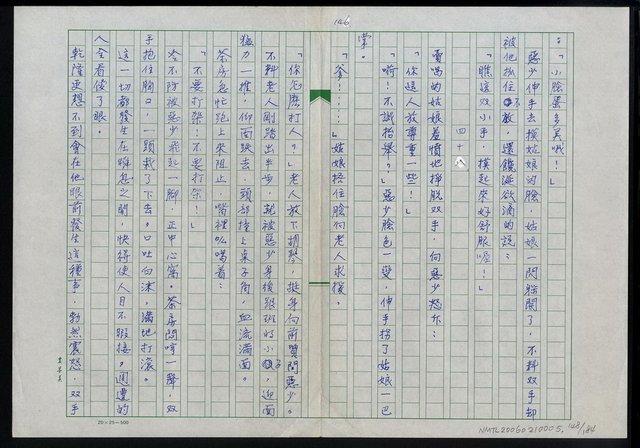 146
:「小臉蛋多美哦!」
惡少伸手去摸姑娘的臉,姑娘一閃躲開了,不料双手却
被他抓住不放,還饞涎欲滴的說:
「瞧這双小手,摸起來好舒服喔!」
四十八
賣唱的姑娘羞憤地掙脱双手,向惡少怒斥:
「你這人放尊重一些!」
「嗬!不識抬舉。」惡少臉色一變,伸手摑了姑娘一巴
掌。
「爹!……」姑娘捂住臉向老人求援。
「你怎麽打人?」老人放下胡琴,挺身向前質問惡少。
不料老人剛踏出半步,就被惡少身後跟班的小子,迎面
猛力一推,仰面跌去,頭部撞上桌子角,血流滿面。
茶房急忙跑上來阻止,嘴裡吆喝着:
「不要打架!不要打架!」
冷不防被惡少飛起一脚,正中心窩。茶房悶哼一聲,双
手抱住胸口,一頭栽了下去。口吐白沫,滿地打滾。
這一切都發生在瞬息之間,快得使人目不暇接。週遭的
人全看傻了眼。
乾隆更想不到會在他眼前發生這種事,勃然震怒,双手
20×25=500
NMTL20060210005, 148/184